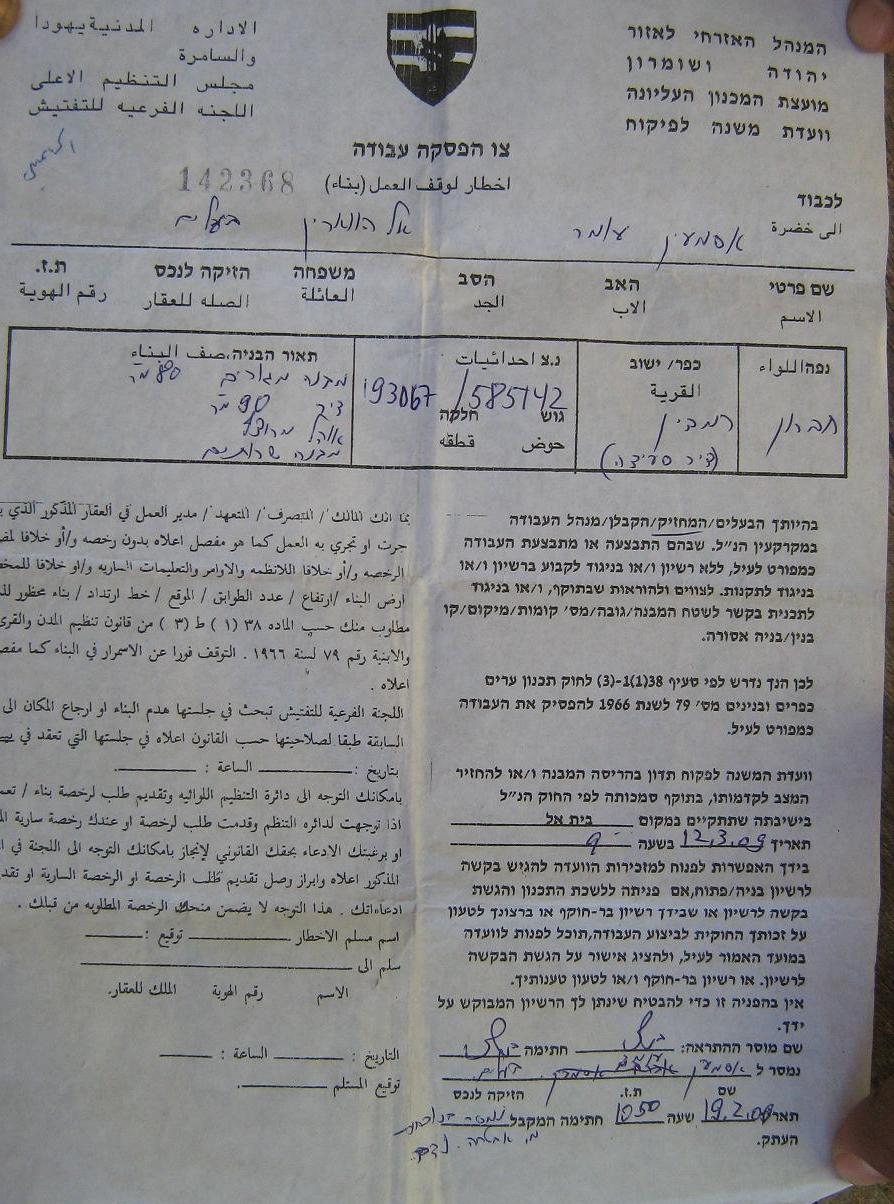 המנהל האזרחי לאזור
יהודה ושומרון
מועצת המכנון העליונה
וועדת משנה לפיקוח
الاداره المدنية يهودا
والسامرة
مجلس التنظيم الاعلى
اللجنه الفرعيه للتفتيش
צו הפסקה עבודה
اخطار لوقف العمل (بناء)
142368
לכבוד
الى حضرة
אסמעין עומר אל הווארין בעלים
שם פרטי האב הסב משפחה הזיקה לנכס ת.ז.
الاسم الاب الجد العائلة الصله للعقار رقم الهوية
נפה اللواء
חברון
כפר/ ישוב
القرية
נ.צ احداثيات
193067/585142
גוש חלקה
حوض قطقه
תאור הבניה, صف البناء
מבנה מגורים 80 מר
דיר 90 מר
מבנה שרותים
בהיותך הבעלים/המחזיק/הקבלן/מנהל העבודה
במקרקעין הנ"ל. שבהם התבצעה או מתבצעת העבודה
כמפורט לעיל, ללא רשיון ו/או בניגוד לקבוע ברשיון ו/או
בניגוד לתקנות. לצווים ולהוראות שבתוקף, ו/או בניגוד
לתכנית בקשר לשטח המבנה/גובה/מס' קומות/מיקום/קו
בנין/בניה אסורה.
לכן הנך נדרש לפי סעיף 38(1)-1(3) לחוק תכנון ערים
כפרים ובנינים מס' 79 לשנת 1966 להפסיק את העבודה
כמפורט לעיל.
וועדת המשנה לפקוח תדון בהריסה המבנה ו/או להחזיר
המצב לקדמותו, בתוקף סמכותה לפי החוק הנ"ל
בישיבתה שתתקיים במקום בית אל
תאריך 12.3.09 בשעה 9
בידך האפשרות לפנות למזכירות הוועדה להגיש בקשה
לרשיון בניה/פתוח, אם פניתה ללשכת התכנון והגשת
בקשה לרשיון או שבידך רשיון בר-חוקף או ברצונך לטעון
על זכותך החוקית לביצוע העבודה, תוכל לפנות לוועדה
במועד האמור לעיל, ולהציג אישור על הגשת הבקשה
לרשיון. או רשיון בר-חוקף ו/או לטעון טענותיך.
אין בהפניה זו כדי להבטיח שינתן לך הרשיון המבוקש על
ידך.
שם מוסר ההתראה: חתימה
נמסר ל אסמעין
שם ת.ז. הזיקה לנכס
תאריך 19.2.09 שעה 1050 חתימה המקבל
העתק.
بما انك المالك/ المتصرف/ المتعهد/ مدير العمل في العقار المذكور الذي
جرت او تجري به العمل كما هو مفصل اعلاه بدون رخصه و/أو خلافا
الرخصه و/أو خلافا للانظمه والاوامر والتعليمات الساريه و/او خلافا
ارض البناء /ارتفاع / عدد الطوابق / الموقع / خط ارتداد / بناء محظور
مطلوب منك حسب الماده ٣٨ (١) ط (٣) من قانون تنظيم المدن والقرى
والابنية رقم ٧٩ لسنة ١٩٦٦ . التوقف فورا عن الاسمرار في البناء كما
اعلاه .
اللجنة الفرعية للتفتيش تبحث في جلستها هدم البناء او ارجاع المكان الى
السابقة طبقا لصلاحيتها حسب القانون اعلاه في جلستها التي تعقد في
بتاريخ : الساعة :
بامكانك التوجه الى دائرة التنظيم اللوائيه وتقديم طلب لرخصة بناء /
اذا توجهت لدائره التنظم وقدمت طلب لرخصة او عندك رخصة سارية
او برغبتك الادعاء بحقك القانوني لإنجاز بامكانك التوجه الى اللجنة في
المذكور اعلاه وابراز وصل تقديم طلب الرخصة او الرخصة السارية او
ادعاءاتك . هذا التوجه لا يضمن منحك الرخصة المطلوبه من قبلك .
اسم مسلم الاخطار توقيع :
سلم الى
الاسم رقم الهوية الملك للعقار.
التاريخ : الساعة :
توقيع المستلم